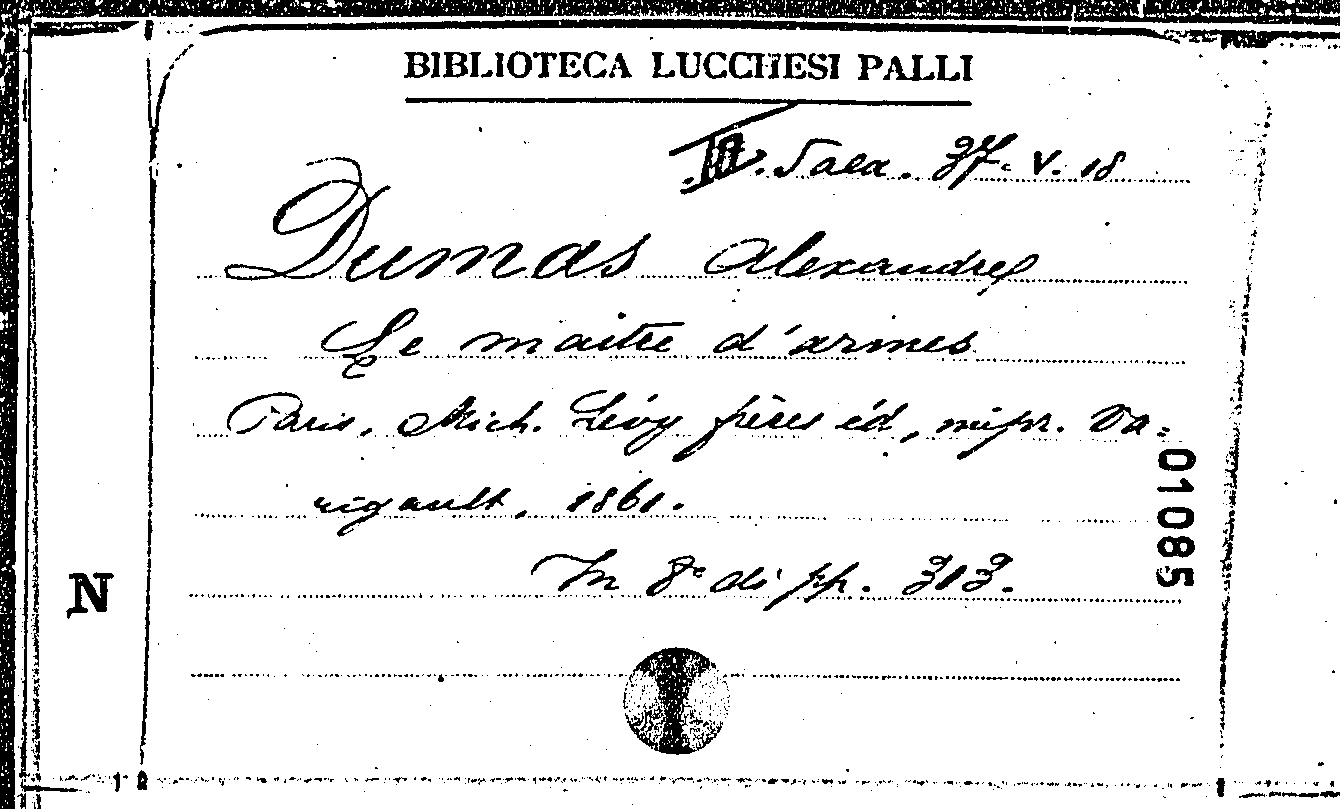 BIBLIOTECA LUCCHESI PALLI
III. Sala. 37. V. 18
Dumas Alexandre
Le maitre d'armes
Paris, Mich. Lévy frères éd, impr. Va=
rigault, 1861.
In 8° di pp. 313.
01085
N